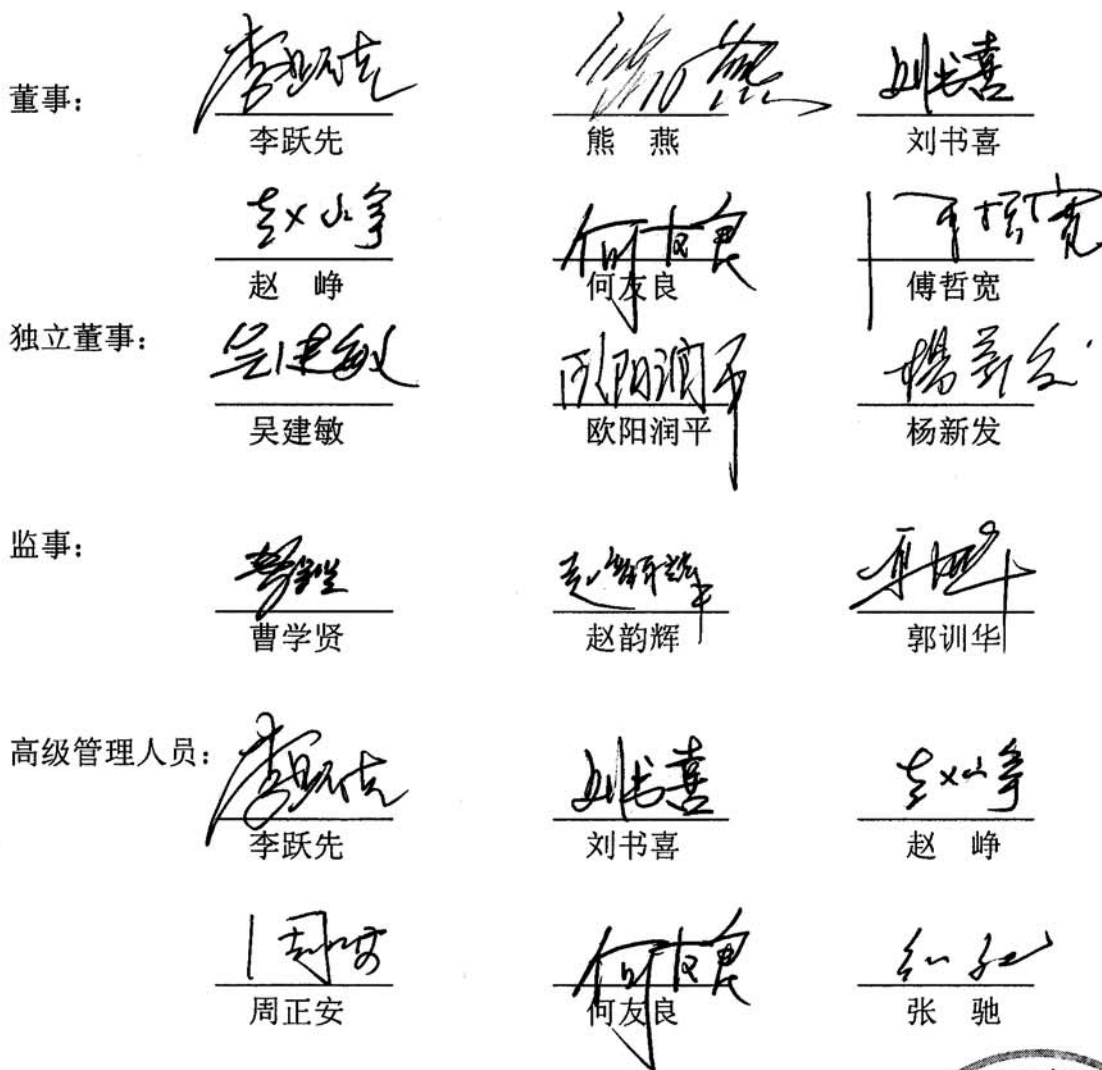 董事：
李跃先 熊 燕 刘书喜
赵 峥 何友良 傅哲宽
独立董事：
吴建敏 欧阳润平 杨新发
监事：
曹学贤 赵韵辉 郭训华
高级管理人员：
李跃先 刘书喜 赵 峥
周正安 何友良 张 驰